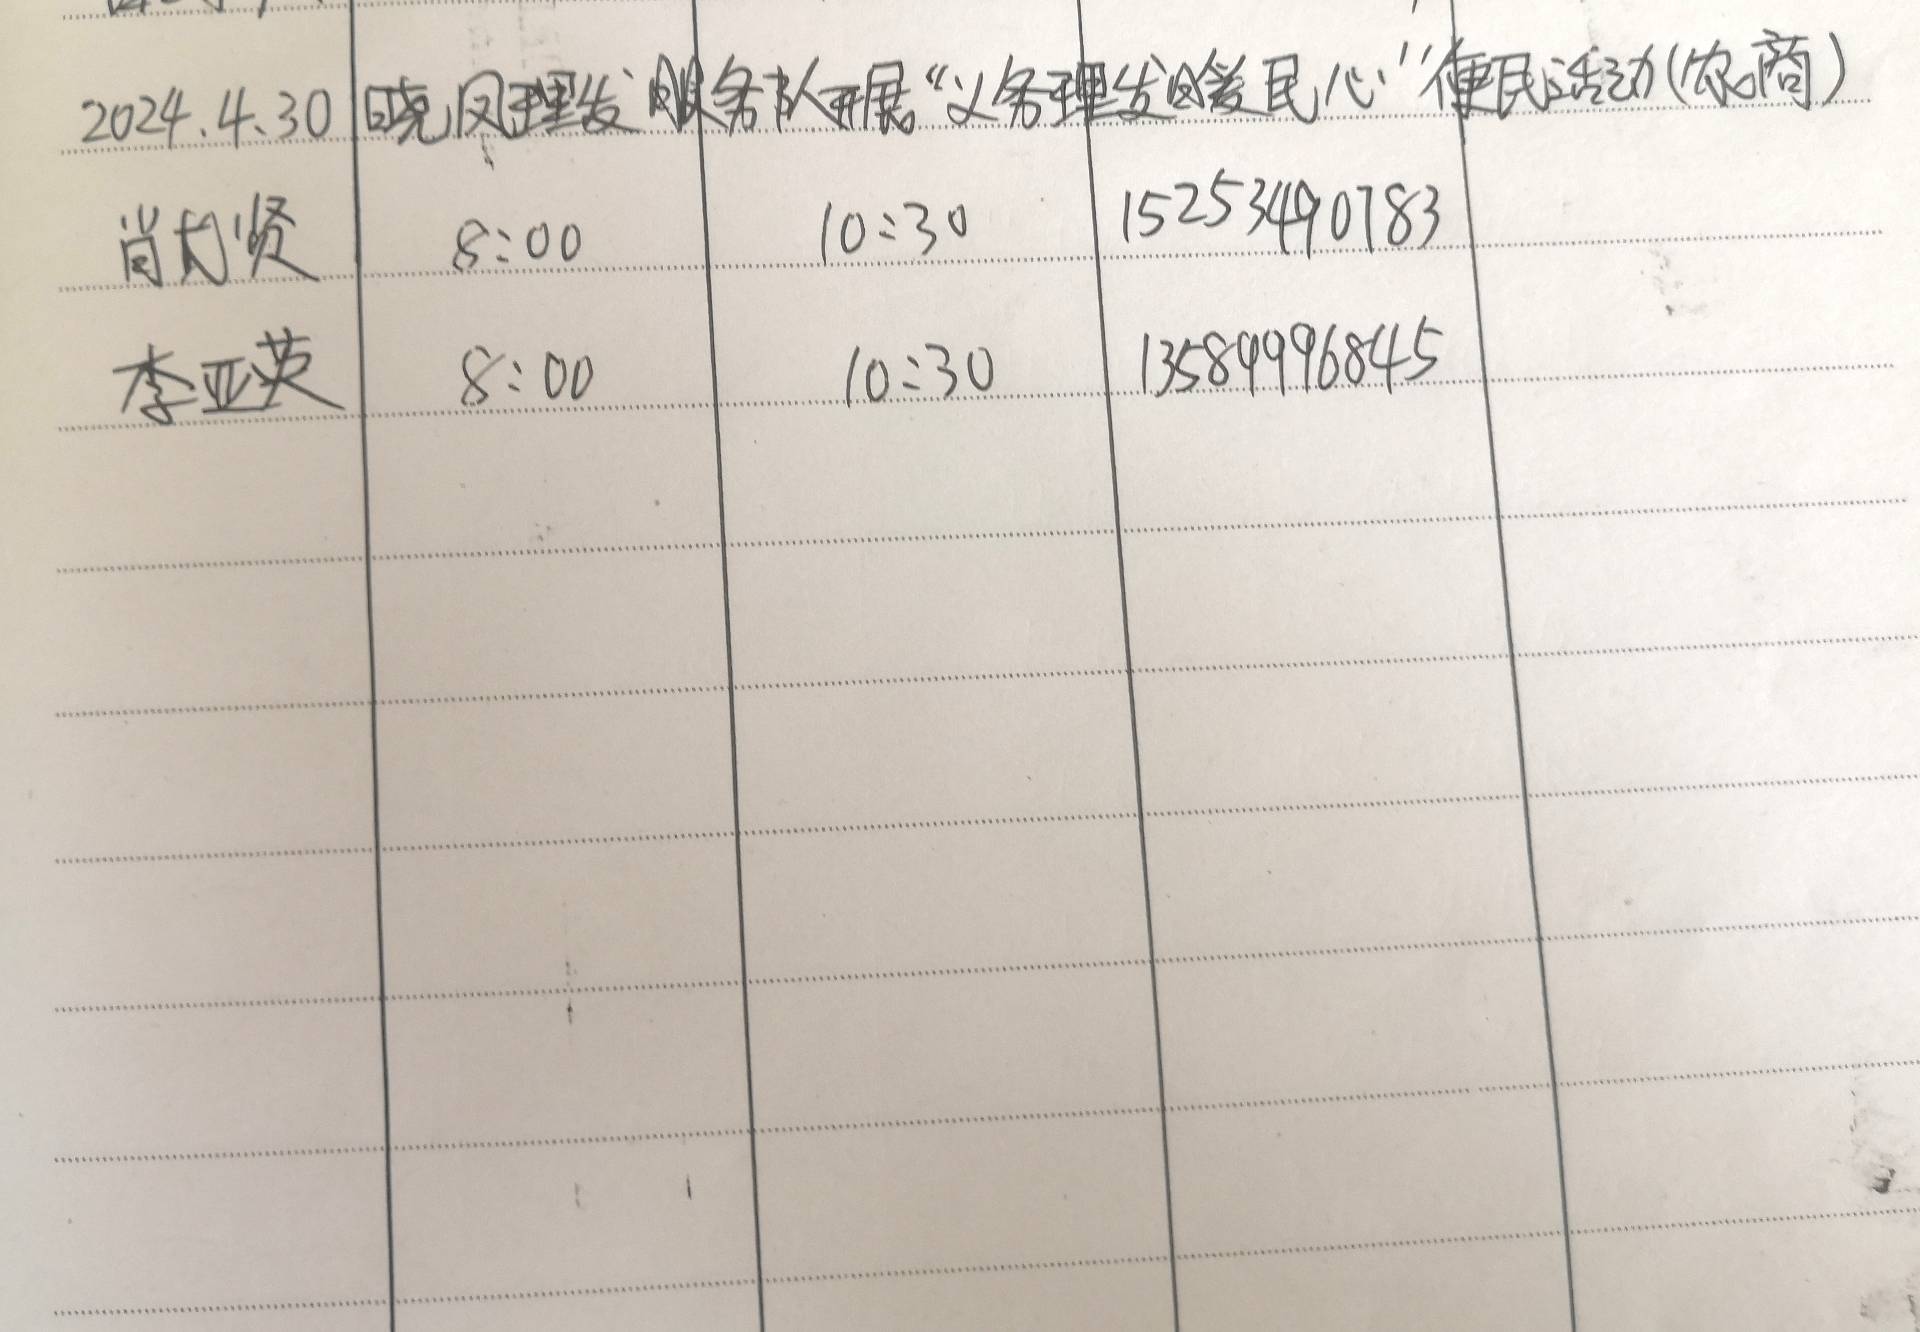 2024.4.30 晓凤理发服务队开展“义务理发暖民心”便民活动(农商)
肖树贤 8:00 10:30 15253490783
李亚英 8:00 10:30 13589996845